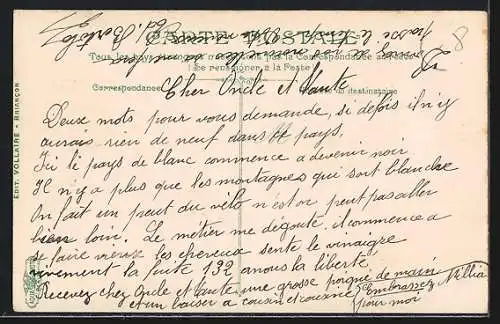 CARTE POSTALE
Tous les pays étrangers n'acceptent pas la Correspondance au recto
(Se renseigner à la Poste)
Correspondance
du destinataire
EDIT. VOLLAIRE - BRIANÇON
8
Cher Oncle et Tante
Deux mots pour vous demande, si defois il n'y
aurais rien de neuf dans le pays,
Ici le pays de blanc commence a devenir noir
Il n'y a plus que les montagnes qui soit blanche
On fait un peut du velo n'est or peut pas aller
bien loin. Le metier me dégoute, il commence a
se faire vieux les cheveux sente le vinaigre
vivement la fuite 132 a nous la liberté
Recevez cher Oncle et tante une grosse poigné de main
et un baiser a cousin et cousine
Embrassez
pour moi